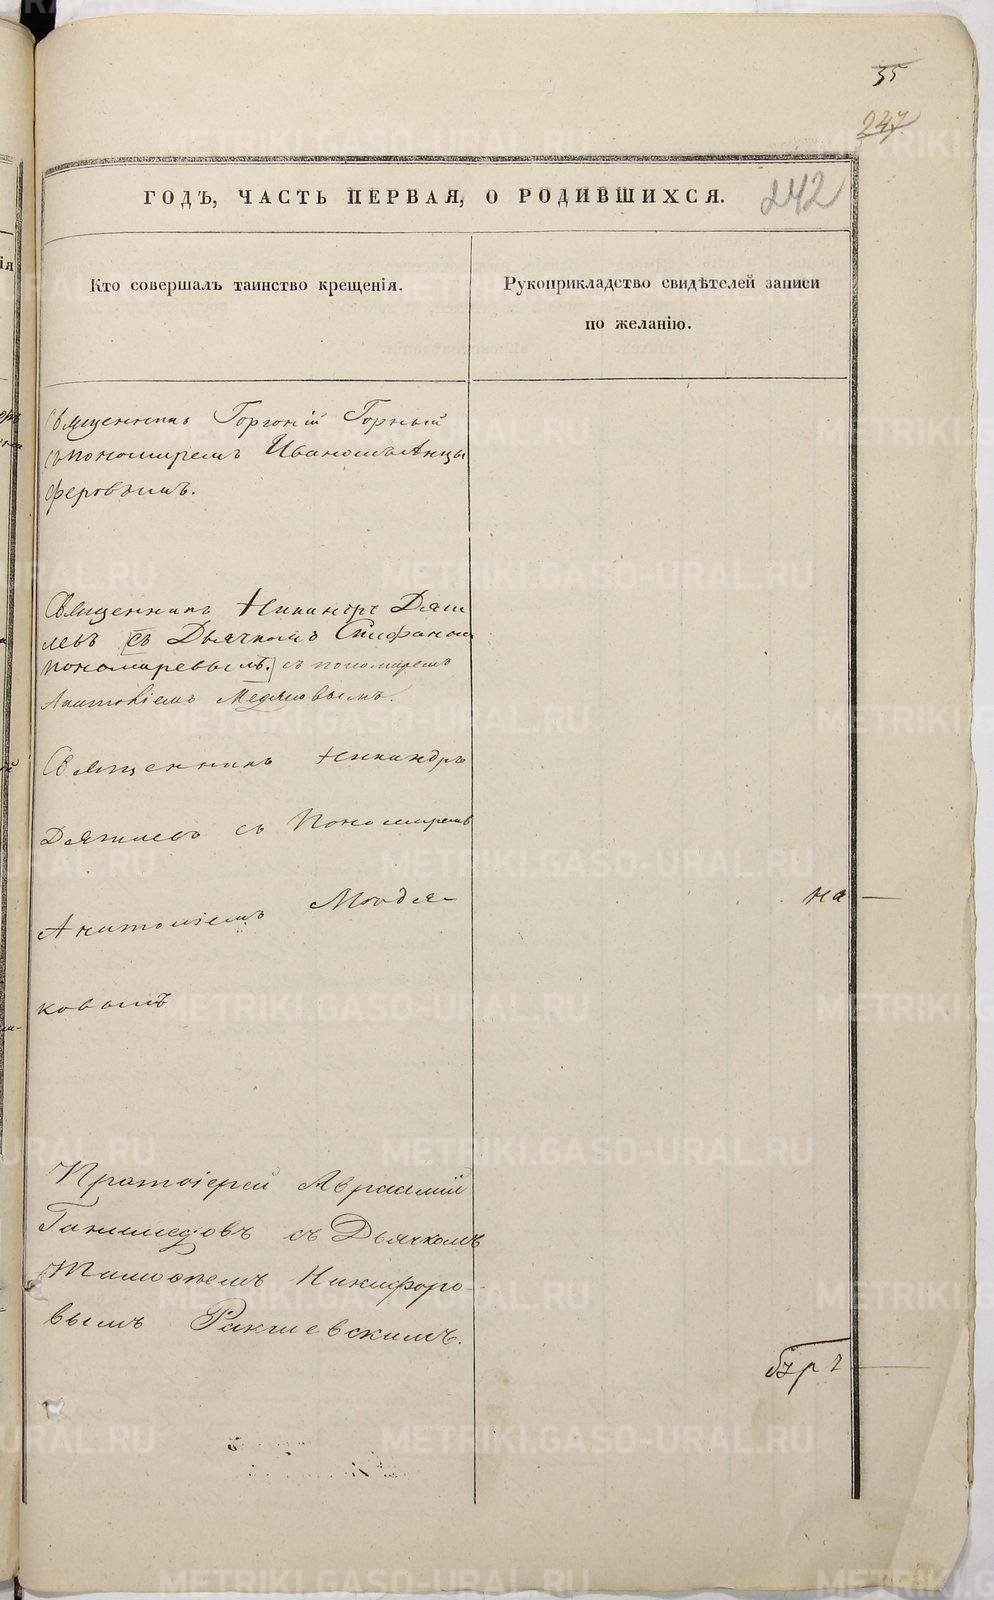 35
247
ГОДЪ, ЧАСТЬ ПЕРВАЯ, О РОДИВШИХСЯ. 242
Кто совершалъ таинство крещенія.
Рукоприкладство свидѣтелей записи
по желанію.
Священникъ Горгоній Горный
съ пономаремъ Иваномъ Анцы
феровымъ.
Священникъ Никандръ Дягилевъ
съ Дьячкомъ Стефаномъ
пономаревымъ. съ пономаремъ
Анатоліемъ
Священникъ Никандръ
Дягилевъ съ Пономаремъ
на
Анатоліемъ
ковымъ
Протоіерей Авраамій
Ганимедовъ съ Дьячкомъ
Никифоро-
вымъ
METRIKI.GASO-URAL.RU